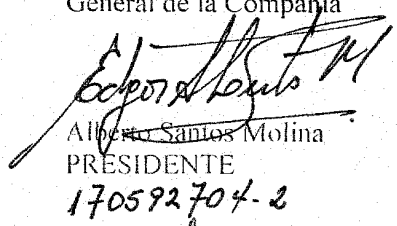 General de la Compañía
Edgar Alberto M
Alberto Santos Molina
PRESIDENTE
170592704-2